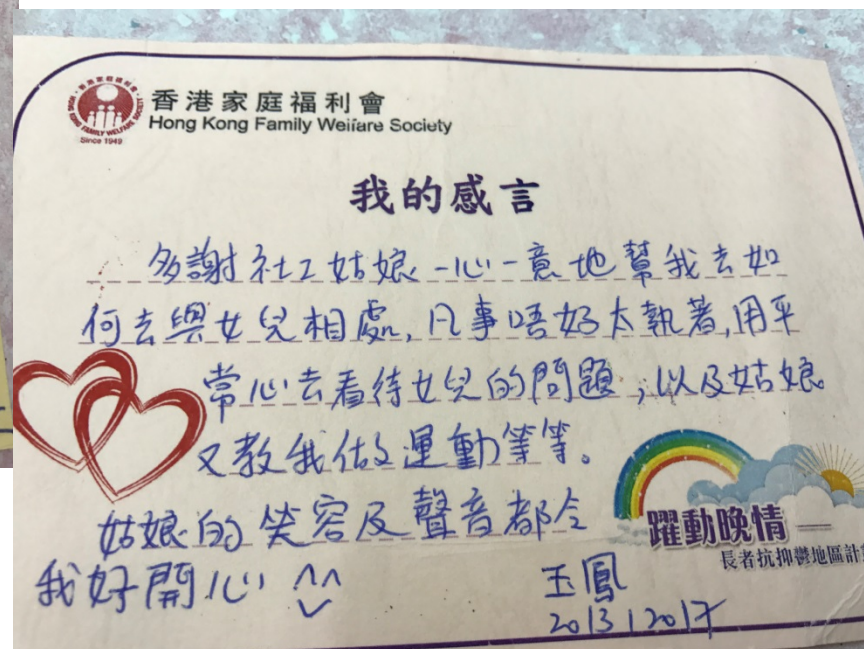 香港家庭福利會
Hong Kong Family Welfare Society
Since 1949
我的感言
多謝社工姑娘一心一意地幫我去如
何去與女兒相處,凡事唔好太執著,用平
常心去看待女兒的問題,以及姑娘
又教我做運動等等。
姑娘的笑容及聲音都令
我好開心 ^^
躍動晚情
長者抗抑鬱地區計
玉鳳
20/3/2017